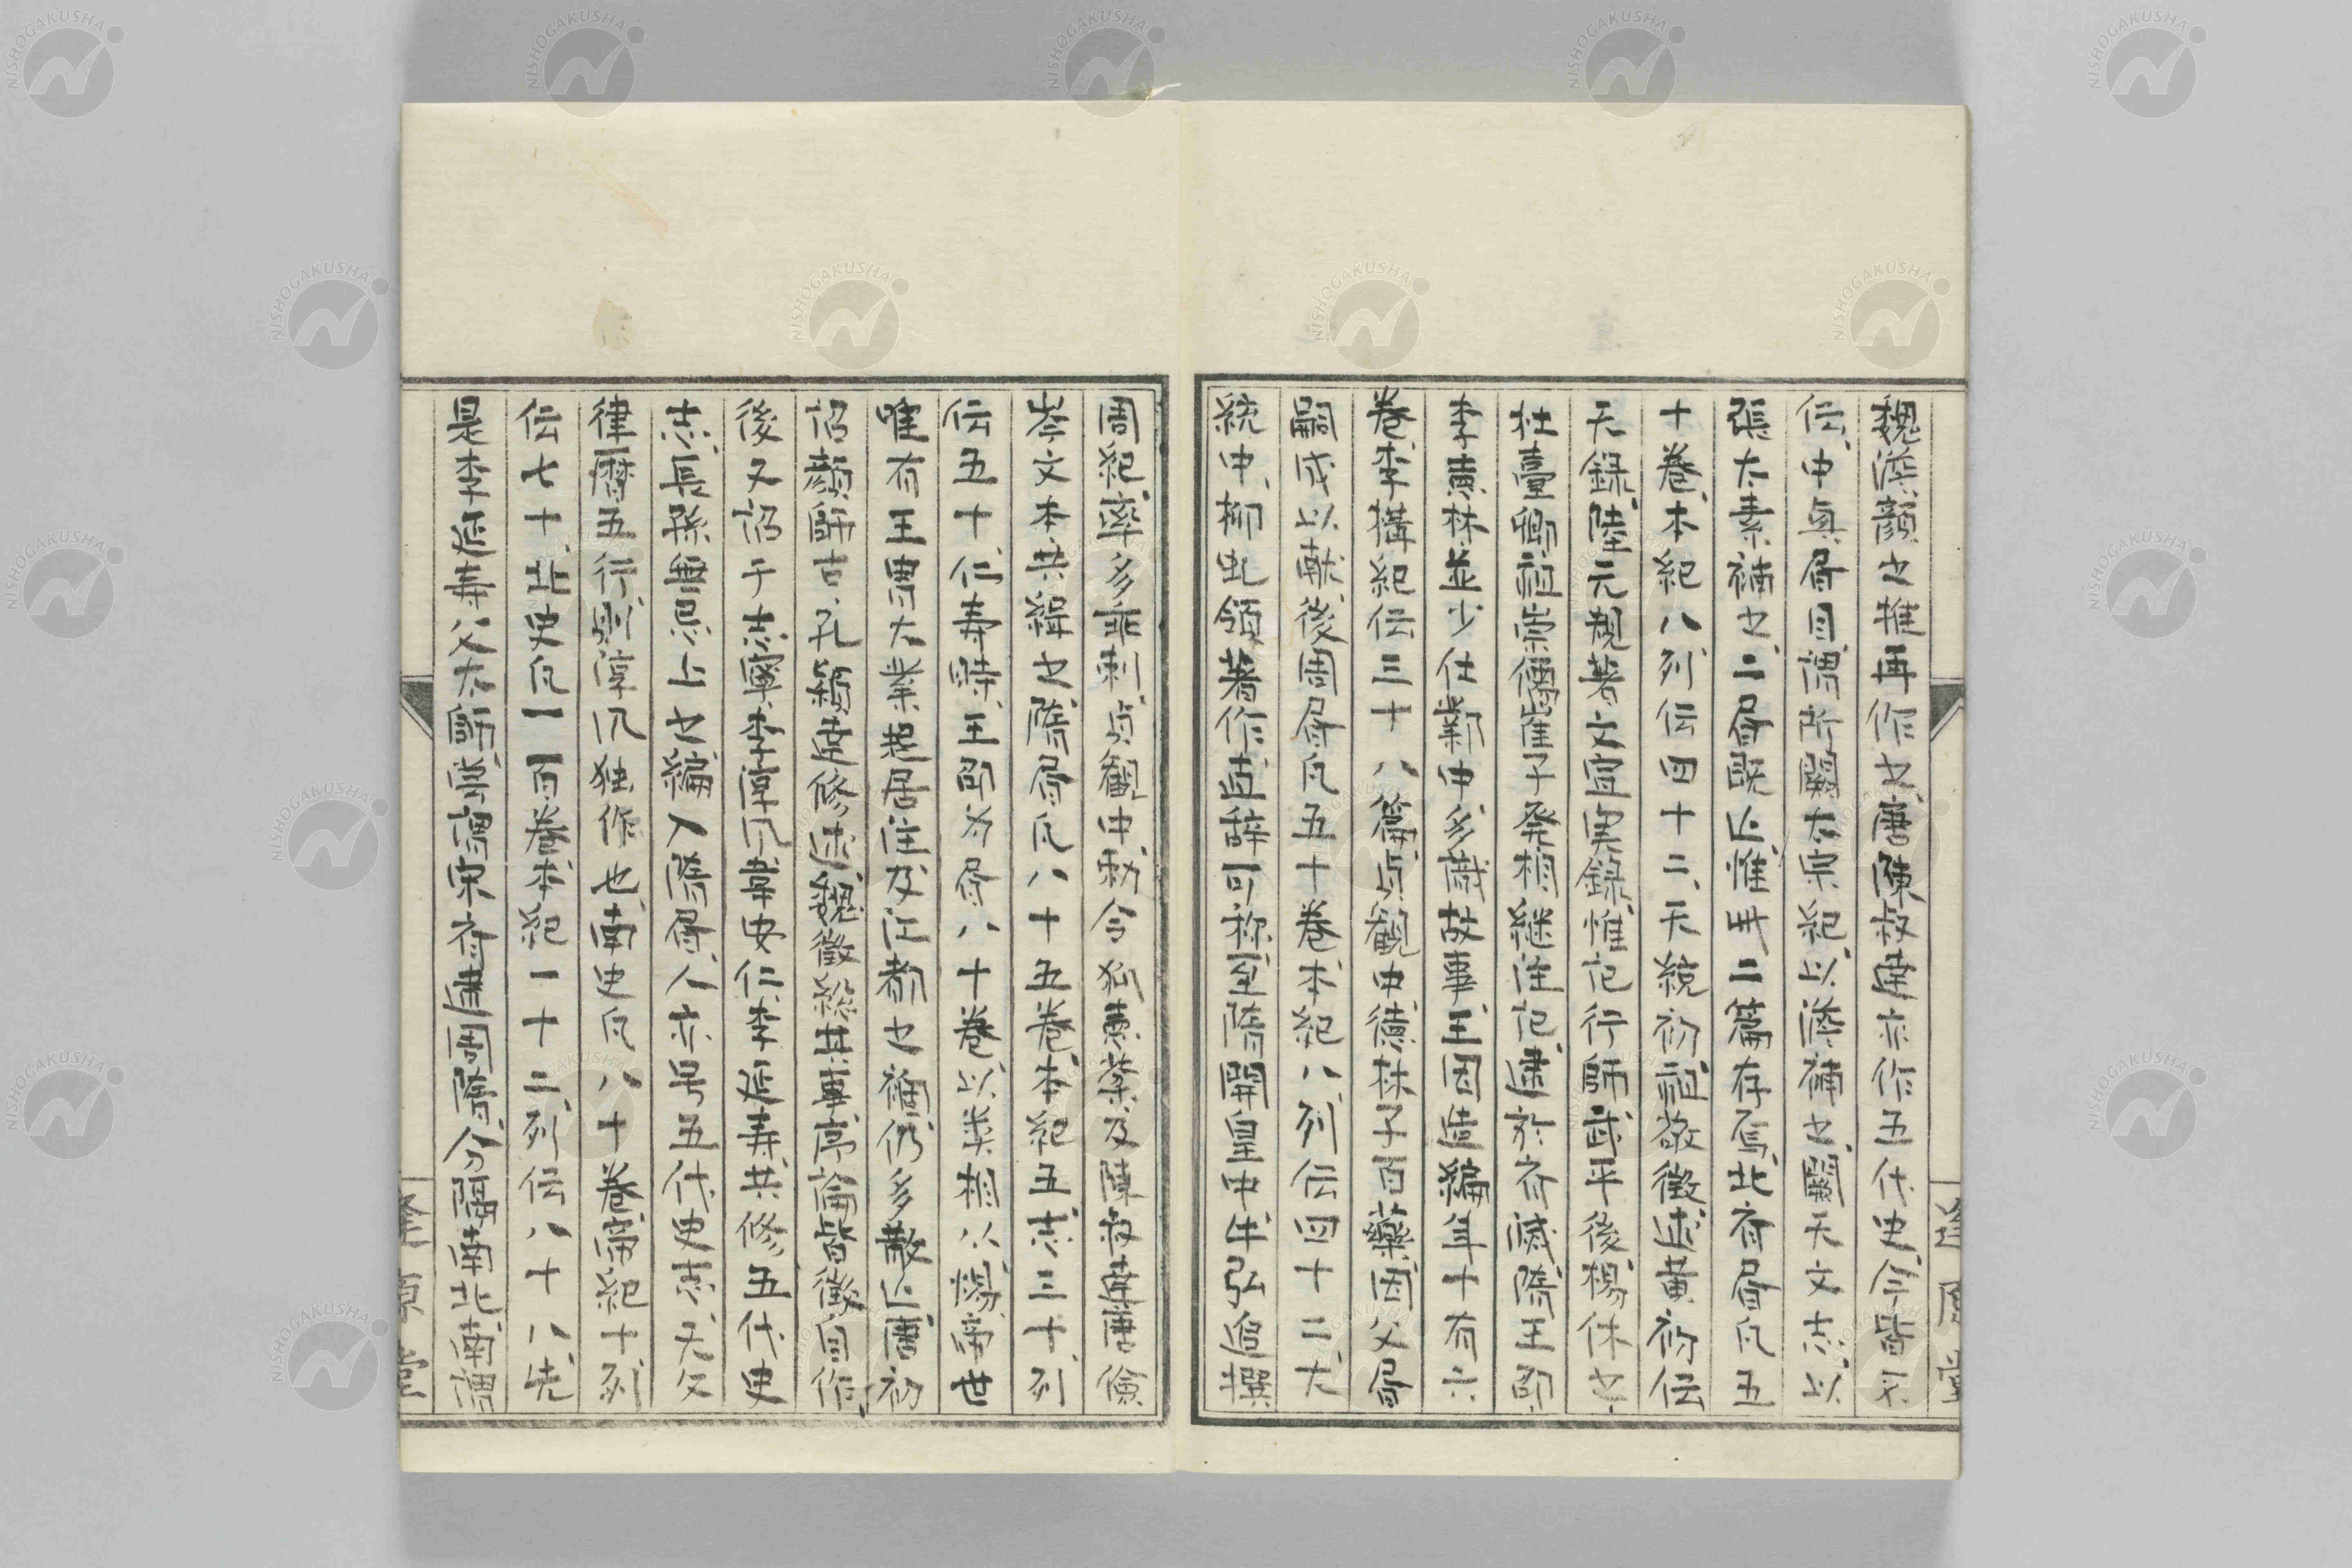 魏澹顔之推再作之、唐陳叔達亦作五代史、今皆不
伝、中興書目謂所闕太宗紀、以澹補之、闕天文志、以
張太素補之、二書既亡、惟此二篇存焉、北斉書凡五
十巻、本紀八列伝四十二、天統初祖敬徴述黄初伝
天録、陸元規著文宣実録、惟記行師、武平後楊休之、
杜臺卿祖崇儒崔子発相継注記、逮於斉滅、隋王邵、
李徳林並少仕鄴中、多識故事、王因造編年十有六
巻、李搆紀伝三十八篇、貞観中、徳林子百薬因父書
嗣成以献、後周書凡五十巻、本紀八、列伝四十二、大
統中、柳虬領著作、直辞可称、至隋開皇中牛弘追撰
周紀、率多乖剌、貞観中、勅令狐徳棻及陳叔達唐倹
岑文本共緝之、隋書凡八十五巻、本紀五、志三十、列
伝五十、仁寿時、王邵為書八十巻、以类相以、煬帝世
唯有王冑大業起居注、及江都之禍、仍多散亡、唐初
詔顔師古、孔穎達修述、魏徴総其事、序論皆徴自作
後又詔于志寧、李淳风、韋安仁、李延寿、共修五代史
志、長孫無忌上之、編入隋書、人亦号五代史志、天文
律暦五行、則淳风独作也、南史凡八十巻、帝紀十列
伝七十、北史凡一百巻、本紀一十二、列伝八十八、先
是李延寿父太師、嘗謂宋斉逮周隋、分隔南北、南謂